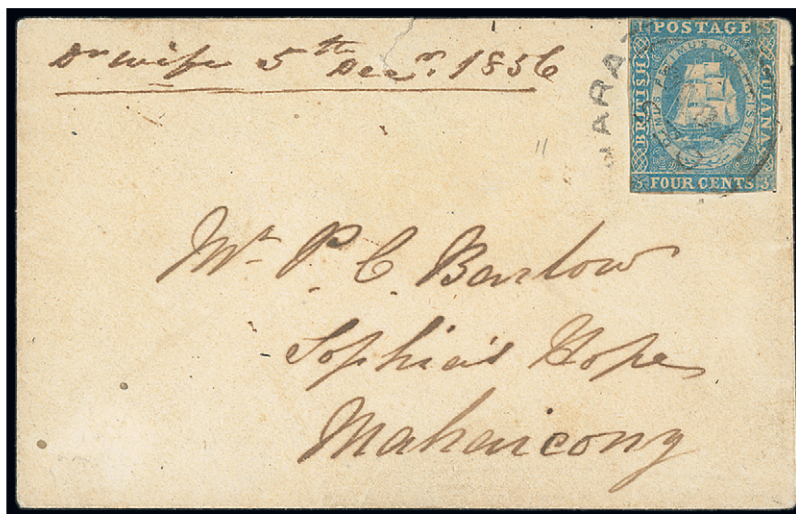 Dr wife 5th Decr. 1856
POSTAGE
BRITISH
GUIANA
FOUR CENTS
Mr. P. C. Barlow
Sophia's Hope
Mahaicony